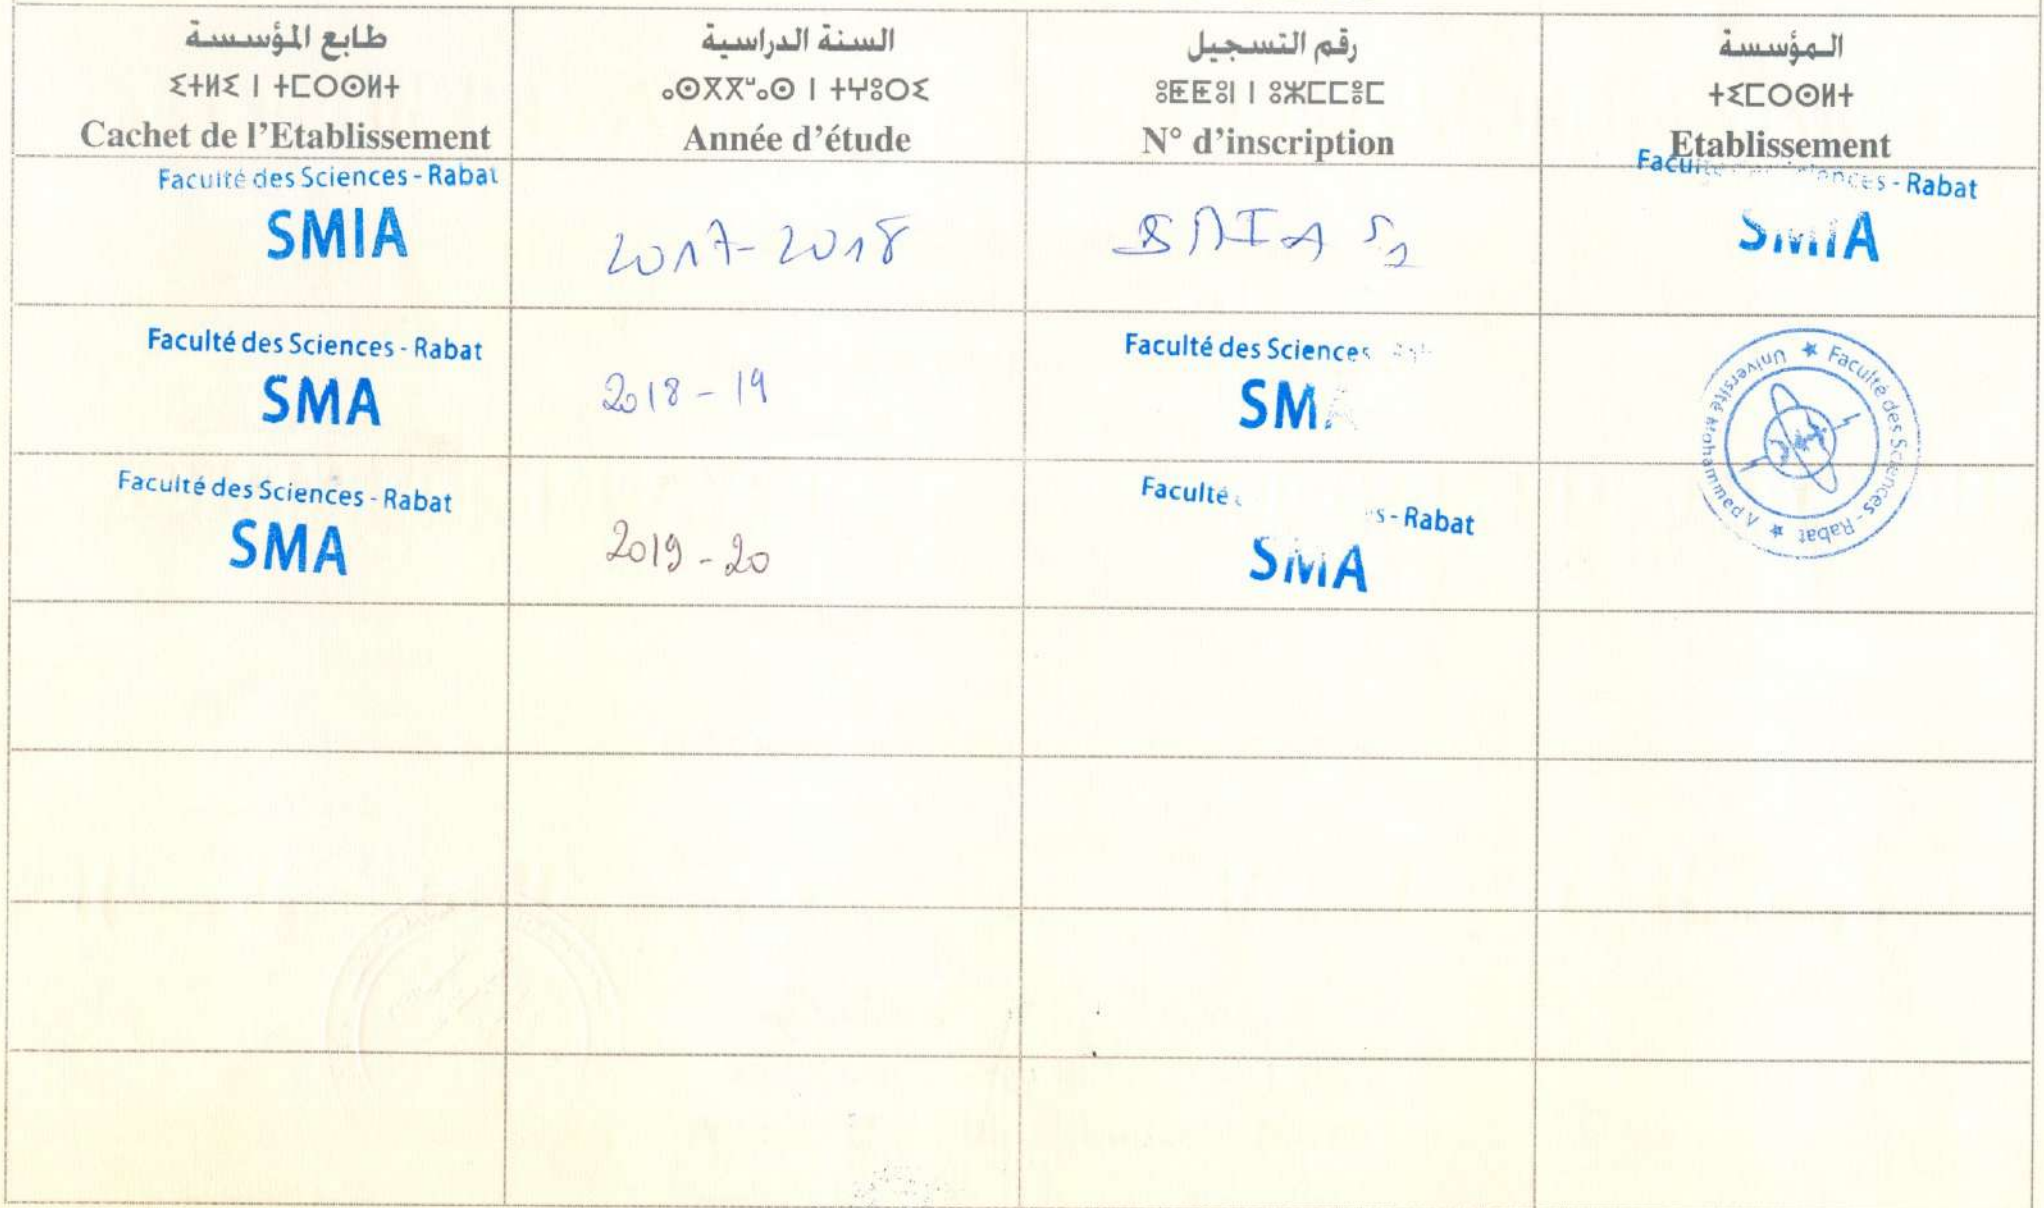 طابع المؤسسة
ⵉⵜⵍⵉ ⵏ ⵜⵎⵔⵙⵍⵜ
Cachet de l'Etablissement
السنة الدراسية
ⴰⵙⴳⴳⵯⴰⵙ ⵏ ⵜⵖⵓⵔⵉ
Année d'étude
رقم التسجيل
ⵓⵟⵟⵓⵏ ⵏ ⵓⵣⵎⵎⵎⴻⵎ
N° d'inscription
المؤسسة
ⵜⵉⵎⵔⵙⵍⵜ
Etablissement
Faculté des Sciences - Rabat
SMIA
2017-2018
SMIA S1
Faculté des Sciences - Rabat
SMIA
Faculté des Sciences - Rabat
SMA
2018-19
Faculté des Sciences
SMA
Université Mohammed V ★ Faculté des Sciences - Rabat ★
Faculté des Sciences - Rabat
SMA
2019-20
Faculté s - Rabat
SMA